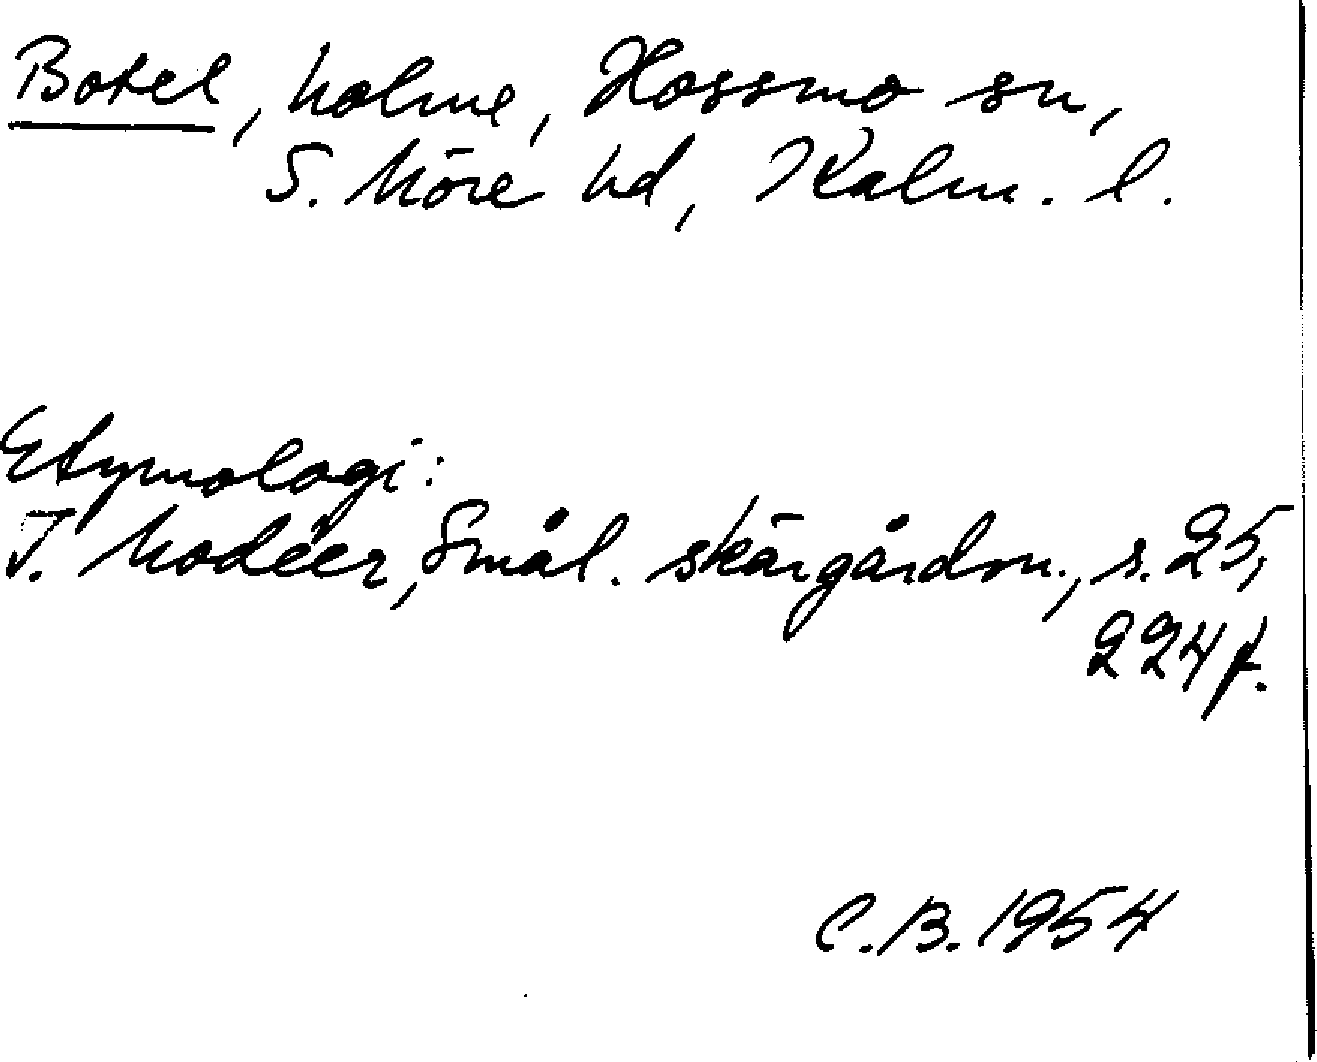 Botel, holme, Hossmo sn,
S. Möre hd, Kalm. l.
Etymologi:
I. Modéer, Smål. skärgårdsn., s. 25,
224 f.
C.B. 1954